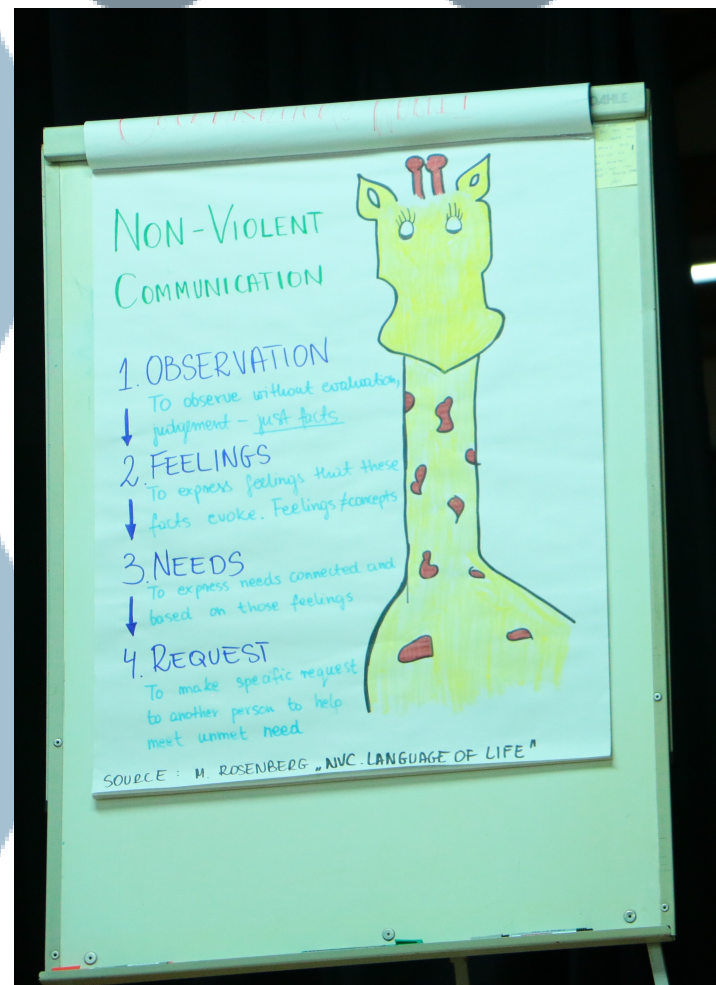 NON-VIOLENT
COMMUNICATION
1. OBSERVATION
To observe without evaluation,
judgement - just facts
2. FEELINGS
To express feelings that these
facts evoke. Feelings ≠ concepts
3. NEEDS
To express needs connected and
based on those feelings
4. REQUEST
To make specific request
to another person to help
meet unmet need
SOURCE: M. ROSENBERG „NVC. LANGUAGE OF LIFE"